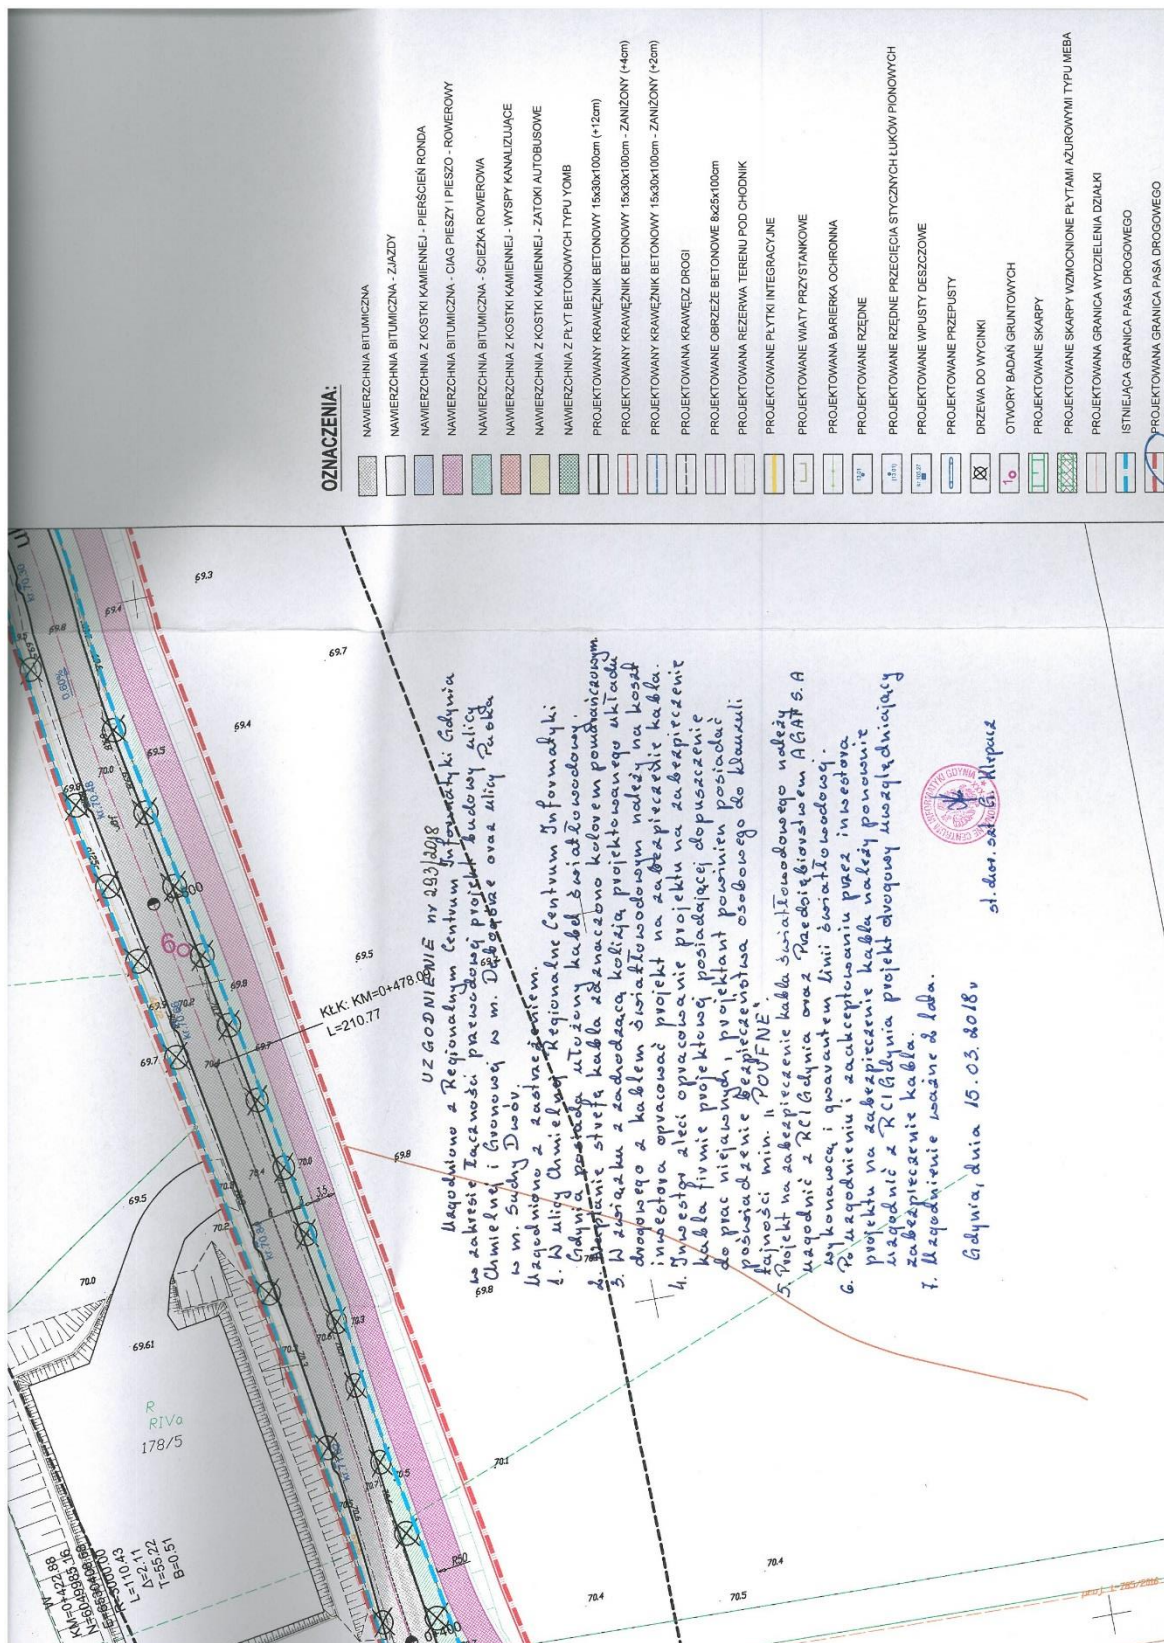 OZNACZENIA:
NAWIERZCHNIA BITUMICZNA
NAWIERZCHNIA BITUMICZNA - ZJAZDY
NAWIERZCHNIA Z KOSTKI KAMIENNEJ - PIERŚCIEŃ RONDA
NAWIERZCHNIA BITUMICZNA - CIĄG PIESZY I PIESZO - ROWEROWY
NAWIERZCHNIA BITUMICZNA - ŚCIEŻKA ROWEROWA
NAWIERZCHNIA Z KOSTKI KAMIENNEJ - WYSPY KANALIZUJĄCE
NAWIERZCHNIA Z KOSTKI KAMIENNEJ - ZATOKI AUTOBUSOWE
NAWIERZCHNIA Z PŁYT BETONOWYCH TYPU YOMB
PROJEKTOWANY KRAWĘŻNIK BETONOWY 15x30x100cm (+12cm)
PROJEKTOWANY KRAWĘŻNIK BETONOWY 15x30x100cm - ZANIŻONY (+4cm)
PROJEKTOWANY KRAWĘŻNIK BETONOWY 15x30x100cm - ZANIŻONY (+2cm)
PROJEKTOWANA KRAWĘDZ DROGI
PROJEKTOWANE OBRZEŻE BETONOWE 8x25x100cm
PROJEKTOWANA REZERWA TERENU POD CHODNIK
PROJEKTOWANE PŁYTKI INTEGRACYJNE
PROJEKTOWANE WIATY PRZYSTANKOWE
PROJEKTOWANA BARIERKA OCHRONNA
PROJEKTOWANE RZĘDNE
PROJEKTOWANE RZĘDNE PRZECIĘCIA STYCZNYCH ŁUKÓW PIONOWYCH
PROJEKTOWANE WPUSTY DESZCZOWE
PROJEKTOWANE PRZEPUSTY
DRZEWA DO WYCINKI
OTWORY BADAŃ GRUNTOWYCH
PROJEKTOWANE SKARPY
PROJEKTOWANE SKARPY WZMOCNIONE PŁYTAMI AŻUROWYMI TYPU MEBA
PROJEKTOWANA GRANICA WYDZIELENIA DZIAŁKI
ISTNIEJĄCA GRANICA PASA DROGOWEGO
PROJEKTOWANA GRANICA PASA DROGOWEGO
UZGODNIENIE nr 293/2018
Uzgodniono z Regionalnym Centrum Informatyki Gdynia
w zakresie łączności przewodowej projekt budowy ulicy
Chmielnej i Gronowej w m. Dębogórze oraz ulicy Paska
w m. Suchy Dwór.
Uzgodniono z zastrzeżeniem.
1. W ulicy Chmielnej Regionalne Centrum Informatyki
Gdynia posiada ułożony kabel światłowodowy.
2. Na planie strefą kabla zaznaczono kolorem pomarańczowym.
3. W związku z zachodzącą kolizją projektowanego układu
drogowego z kablem światłowodowym należy na koszt
inwestora opracować projekt na zabezpieczenie kabla.
4. Inwestor zleci opracowanie projektu na zabezpieczenie
kabla firmie projektowej posiadającej dopuszczenie
do prac niejawnych, projektant powinien posiadać
poświadzenie bezpieczeństwa osobowego do klauzuli
tajności min. "POUFNE".
5. Projekt na zabezpieczenie kabla światłowodowego należy
uzgodnić z RCI Gdynia oraz Przedsiębiorstwem AGAT S.A
wykonawcą i gwarantem linii światłowodowej.
6. Po uzgodnieniu i zaakceptowaniu przez inwestora
projektu na zabezpieczenie kabla należy ponownie
uzgodnić z RCI Gdynia projekt drogowy uwzględniający
zabezpieczenie kabla.
7. Uzgodnienie ważne 2 lata.
Gdynia, dnia 15.03.2018r
KŁK: KM=0+478.0
L=210.77
R
RIVa
178/5
W
KM=0+422.88
L=110.43
Δ=2.11
T=55.22
B=0.51
0+400
R50
69.61
70.0
69.5
69.7
69.8
69.8
69.5
69.4
69.7
69.3
69.4
70.1
70.4
70.5
70.4
0.80%